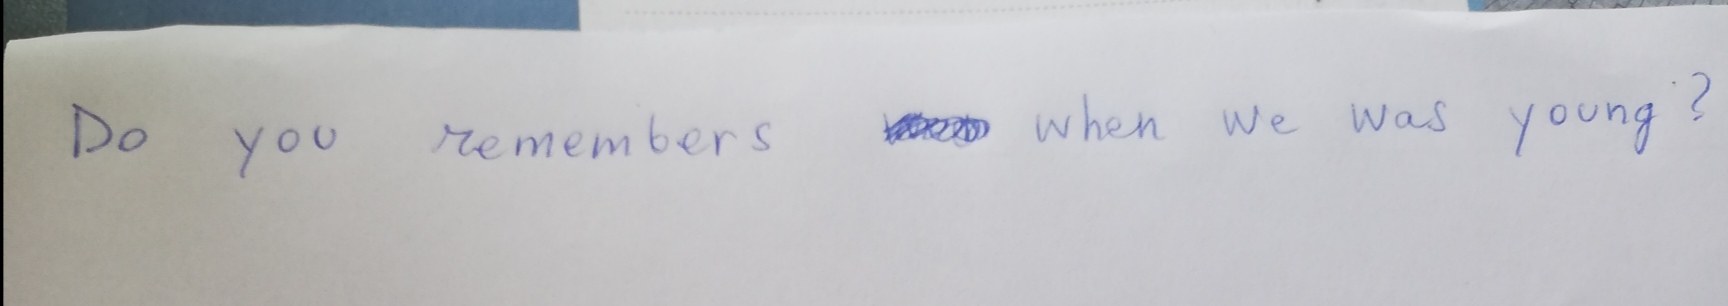 Do you remembers when we was young?